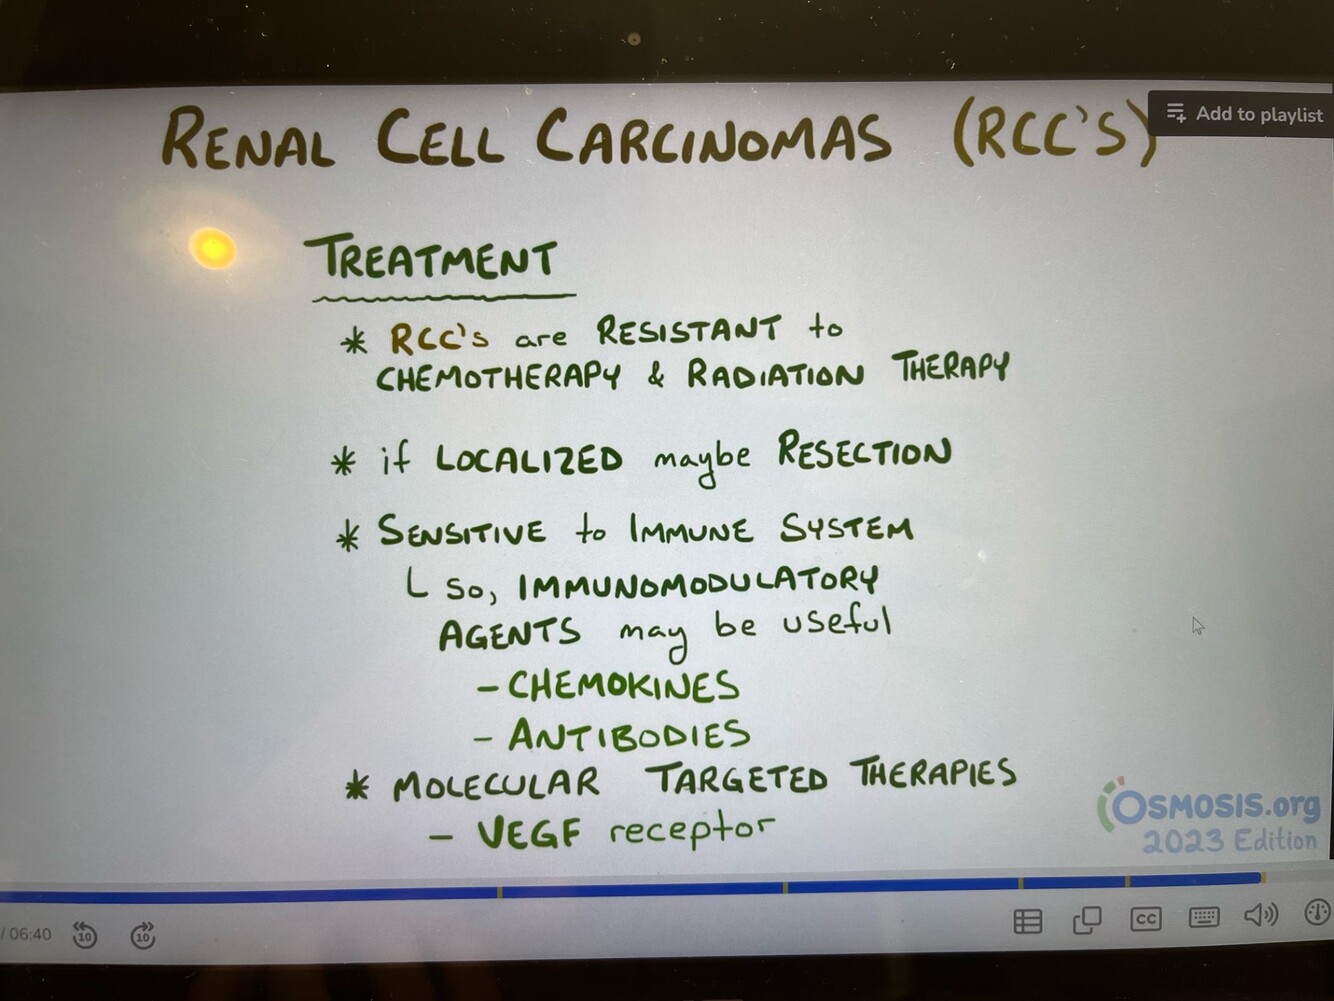 RENAL CELL CARCINOMAS (RCC'S)
Add to playlist
TREATMENT
* RCC's are RESISTANT to
CHEMOTHERAPY & RADIATION THERAPY
* if LOCALIZED maybe RESECTION
* SENSITIVE to IMMUNE SYSTEM
└ so, IMMUNOMODULATORY
AGENTS may be useful
- CHEMOKINES
- ANTIBODIES
* MOLECULAR TARGETED THERAPIES
- VEGF receptor
OSMOSIS.org
2023 Edition
/ 06:40
10
10
CC